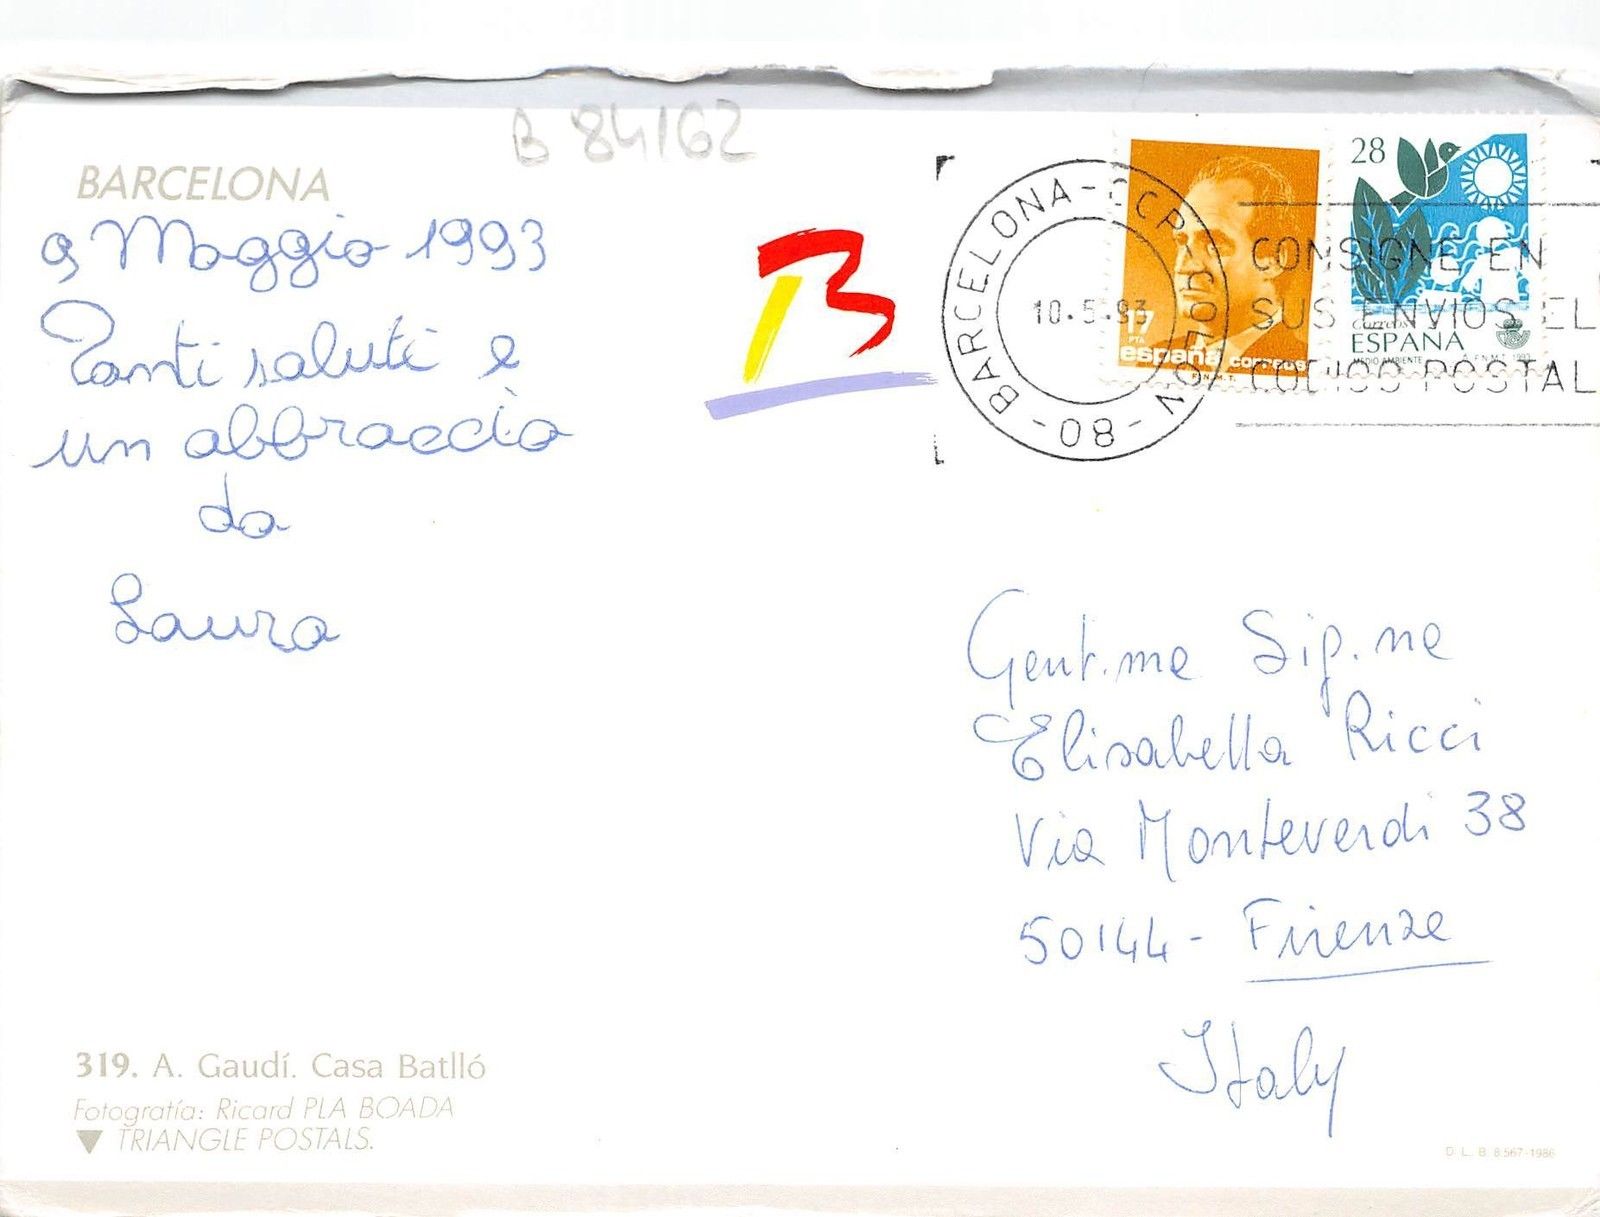 B 84162
BARCELONA
9 Maggio 1993
Tanti saluti e
un abbraccio
da
Laura
BARCELONA-CCP
-08-
10-5-93
17
PTA
españa correos
F.N.M.T.
28
Correos
ESPAÑA
MEDIO AMBIENTE
F.N.M.T. 1993
CONSIGNE EN
SUS ENVIOS EL
CODIGO POSTAL
Gent.ma Sig.na
Elisabella Ricci
Via Monteverdi 38
50144 - Firenze
Italy
319. A. Gaudí. Casa Batlló
Fotografía: Ricard PLA BOADA
▼ TRIANGLE POSTALS.
D. L. B 8.567-1986